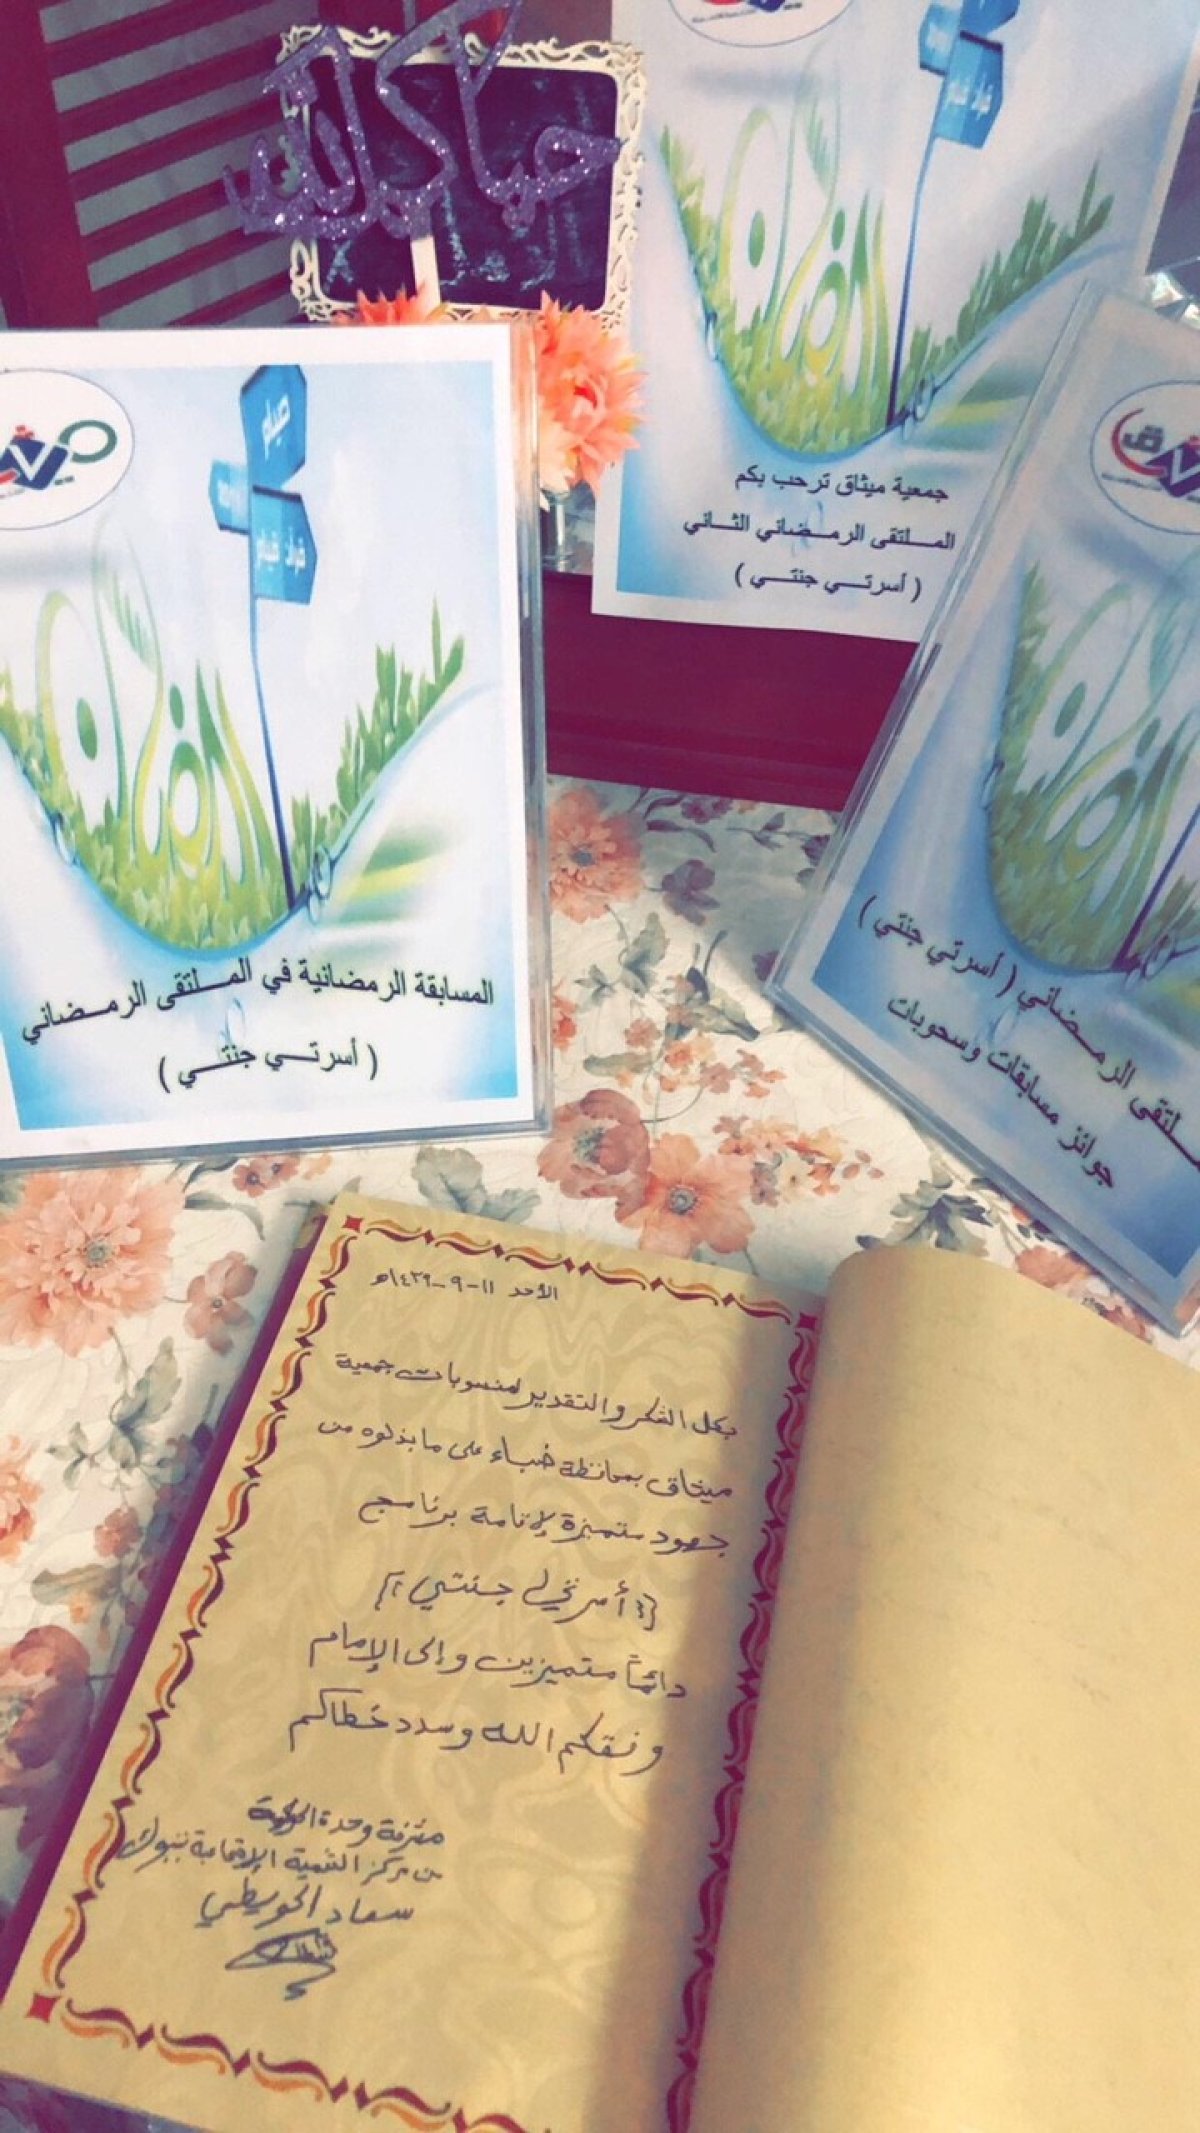 حياكم الله
جمعية ميثاق ترحب بكم
الملتقى الرمضاني الثاني
( أسرتي جنتي )
صيام
قيام
المسابقة الرمضانية في الملتقى الرمضاني
( أسرتي جنتي )
الرمضاني ( أسرتي جنتي )
جوائز مسابقات وسحوبات
الأحد ١١-٩-١٤٣٩هـ
بكل الشكر والتقدير لمنسوبات جمعية
ميثاق بمحافظة ضباء على مابذلوه من
جهود متميزة لإقامة برنامج
{ أسرتي جنتي }
دائماً متميزين وإلى الإمام
وفقكم الله وسدد خطاكم
مشرفة وحدة
من مركز التنمية الإجتماعية بتبوك
سعاد